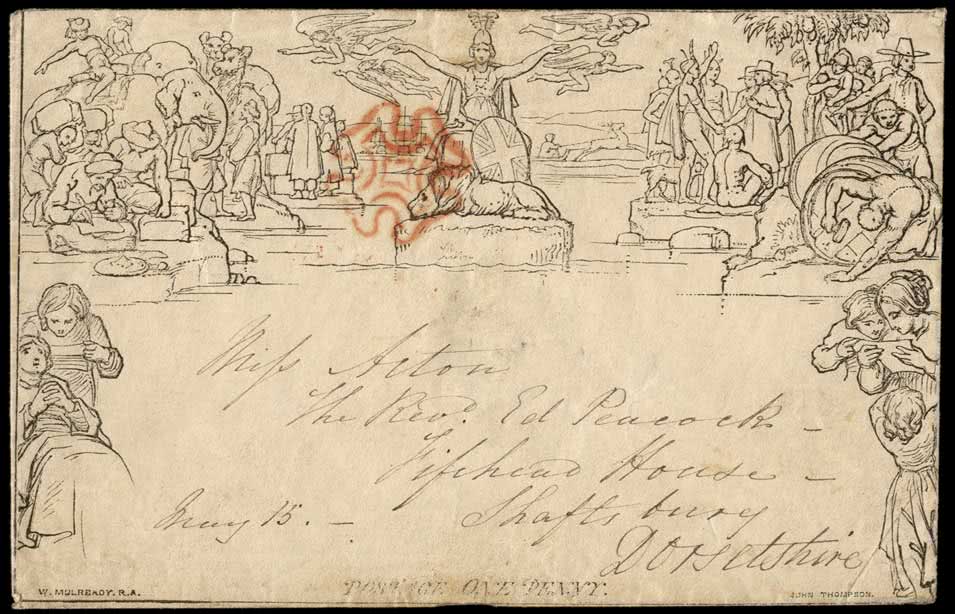 Miss Acton
The Revd. Ed Peacock -
Fifehead House -
May 15. - Shaftsbury
Dorsetshire
POSTAGE ONE PENNY.
W. MULREADY. R.A.
JOHN THOMPSON.